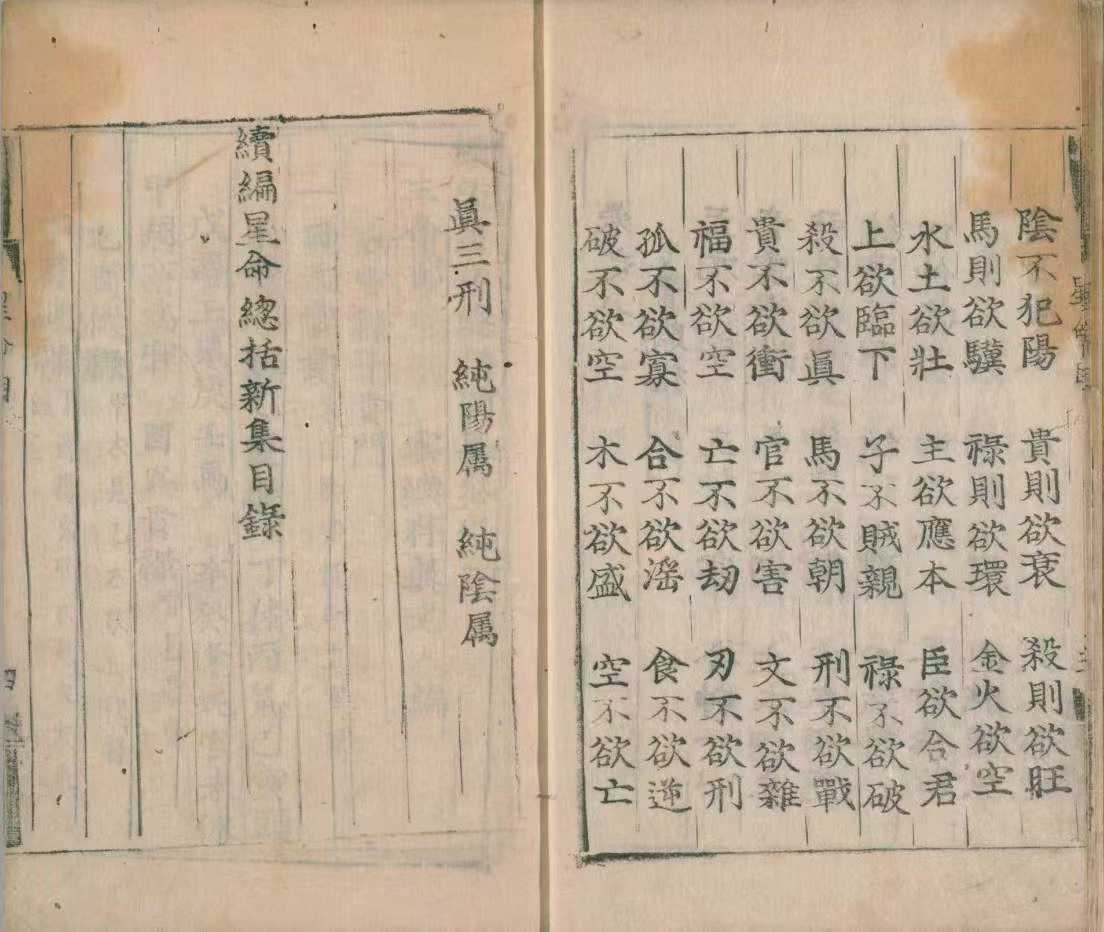 陰不犯陽 貴則欲衰 殺則欲旺
馬則欲驥 祿則欲環 金火欲空
水土欲壯 主欲應本 臣欲合君
上欲臨下 子不賊親 祿不欲破
殺不欲眞 馬不欲朝 刑不欲戰
貴不欲衝 官不欲害 文不欲雜
福不欲空 亡不欲刧 刃不欲刑
孤不欲寡 合不欲滛 食不欲逆
破不欲空 木不欲盛 空不欲亡
眞三刑 純陽属 純陰属
續編星命緫括新集目錄